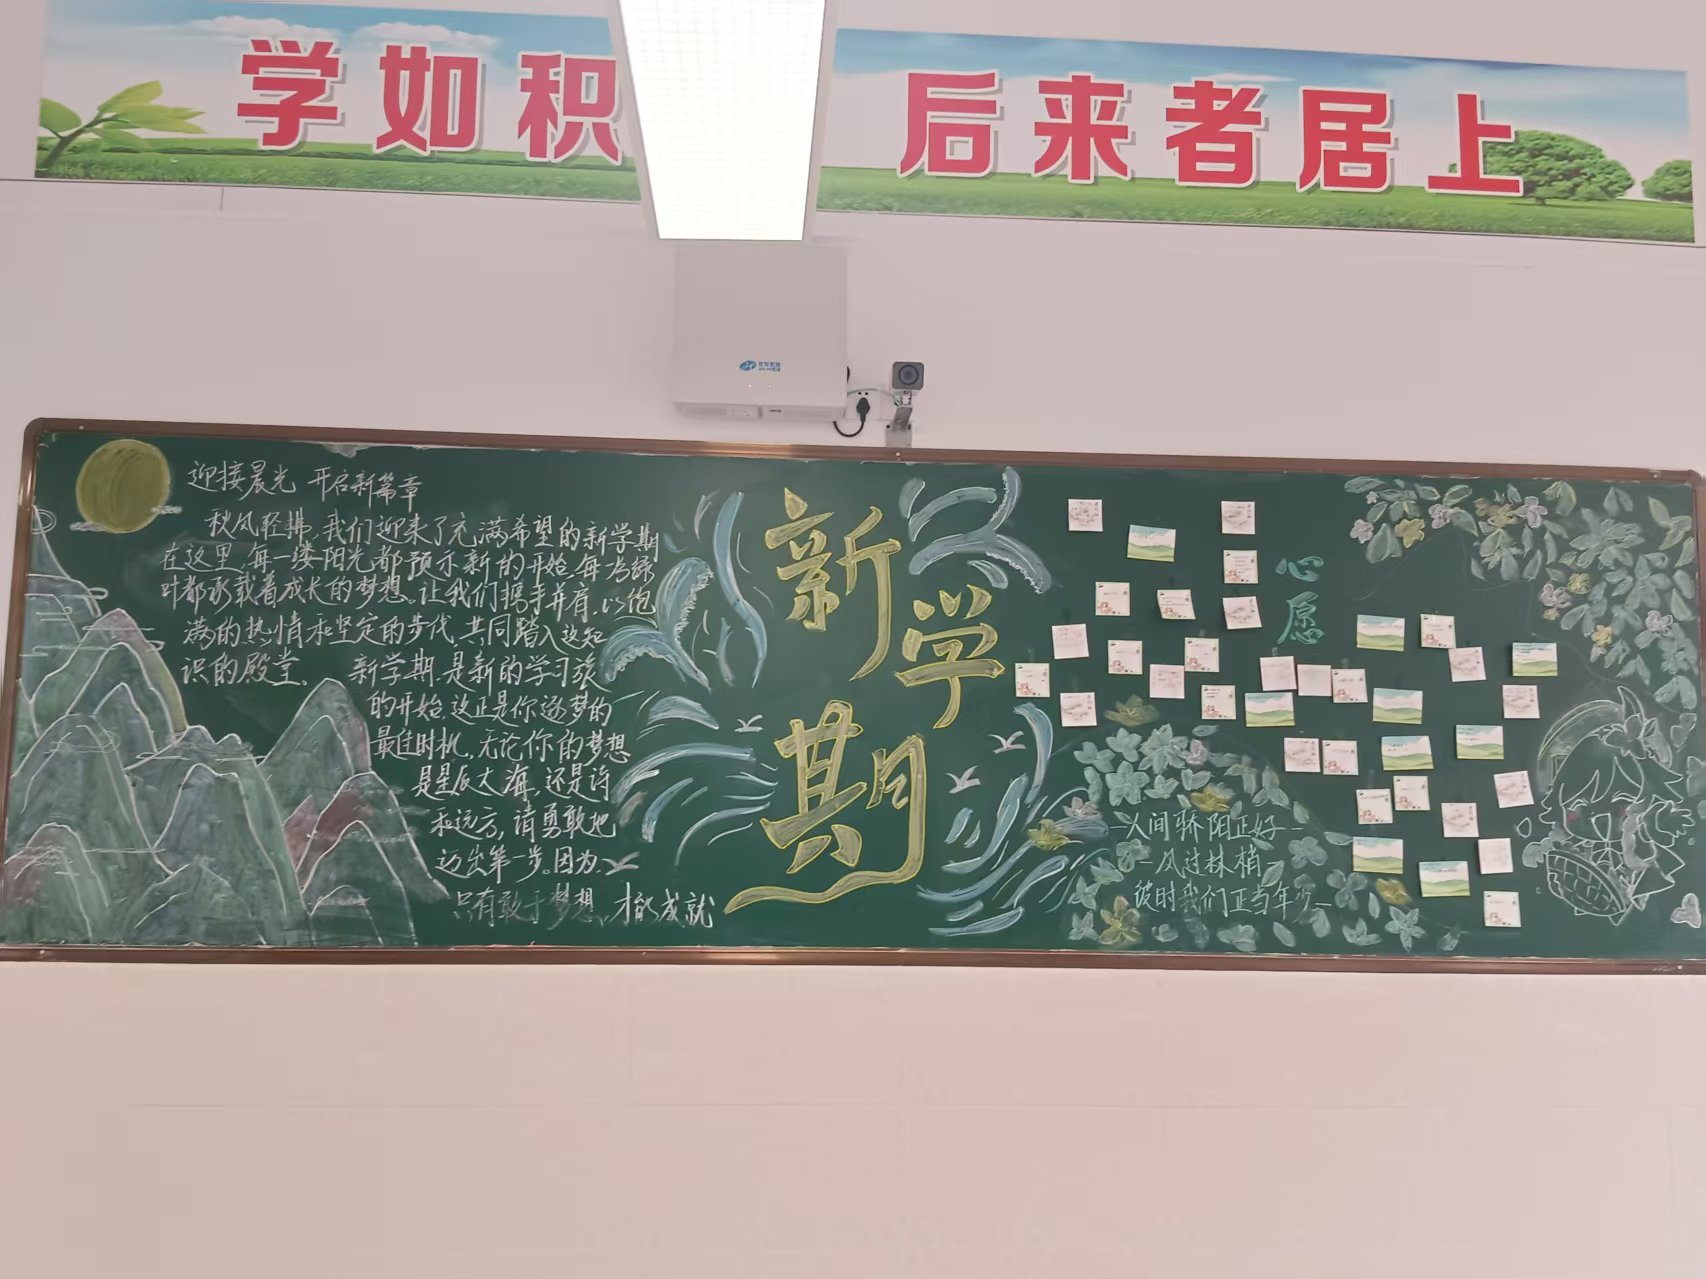 学如积 后来者居上
迎接晨光 开启新篇章
秋风轻拂,我们迎来了充满希望的新学期
在这里,每一缕阳光都预示新的开始,每一片绿
叶都承载着成长的梦想。让我们携手并肩,以饱
满的热情和坚定的步伐,共同踏入这知
识的殿堂。 新学期,是新的学习
的开始,这正是你逐梦的
最佳时机,无论你的梦想
是星辰大海,还是诗
和远方,请勇敢地
迈出第一步。因为
只有敢于梦想,才能成就
新
学
期
心
愿
人间骄阳正好
风过林梢
彼时我们正当年少